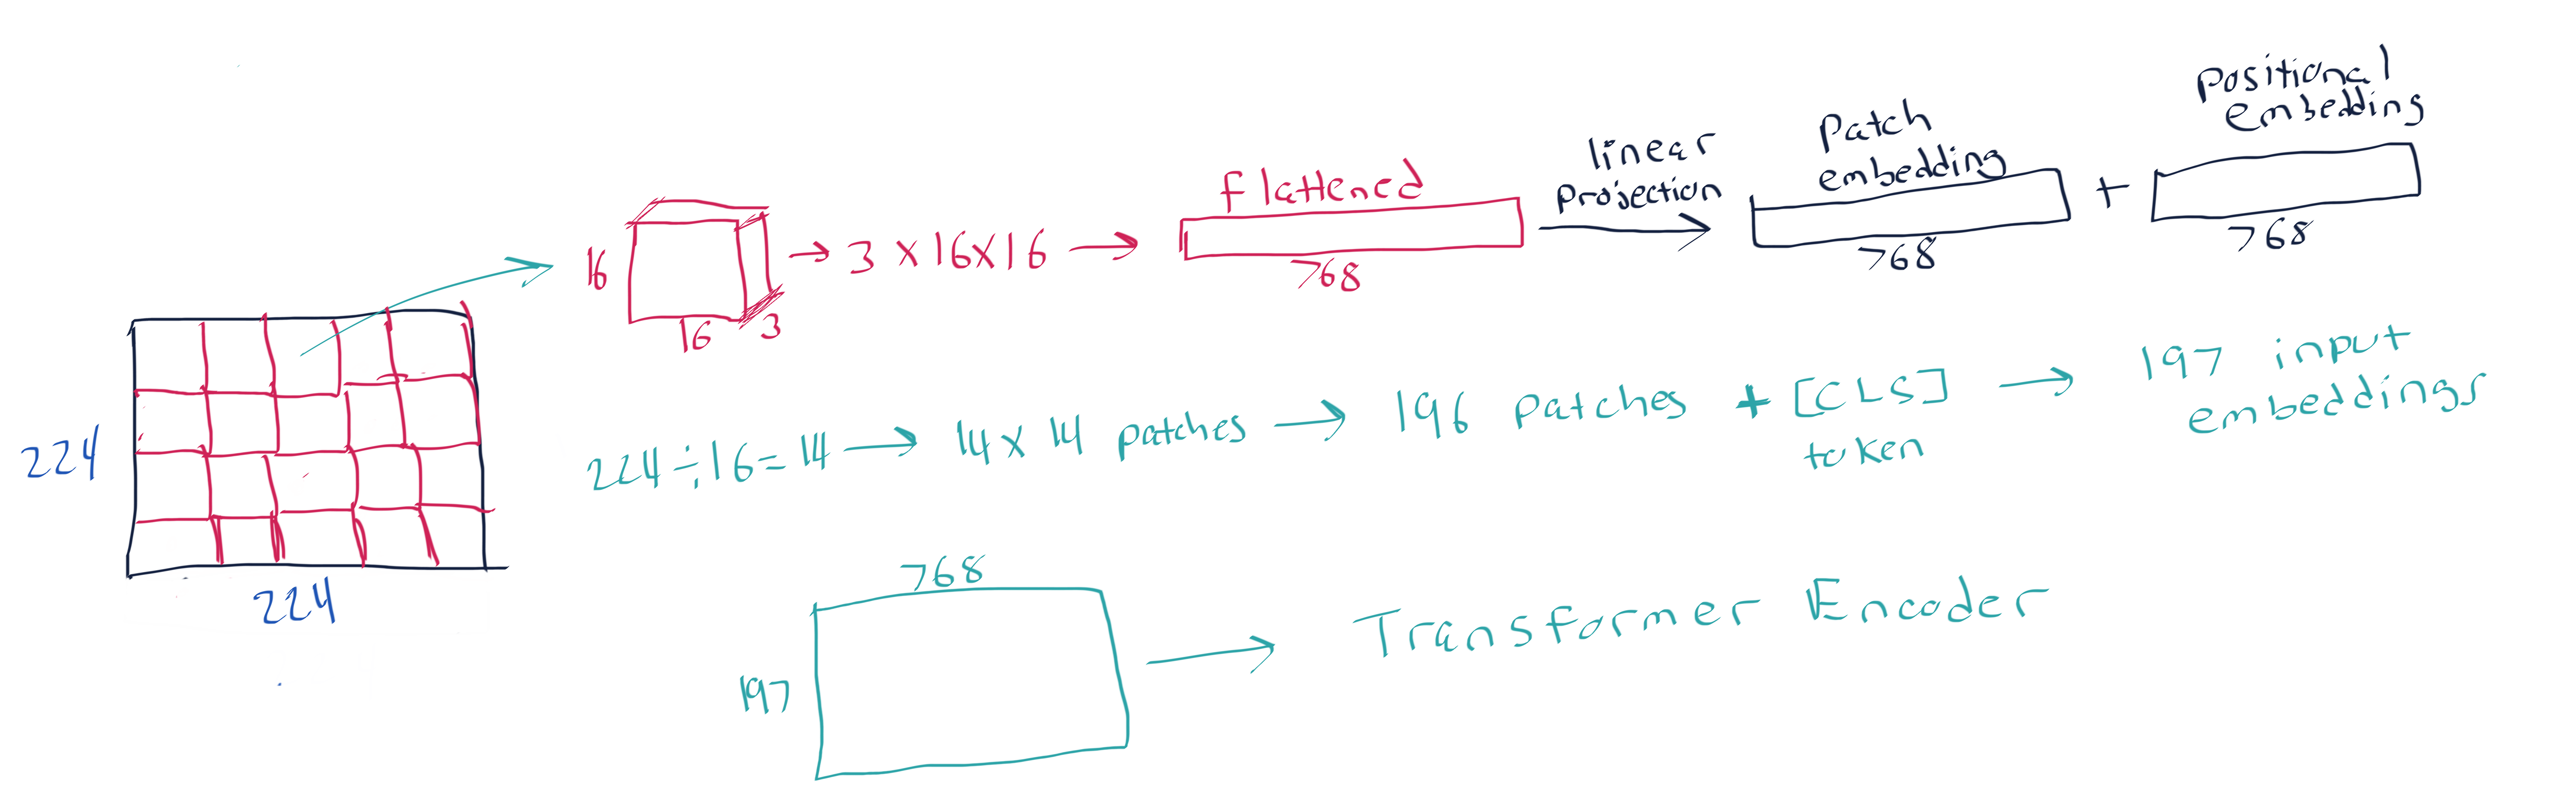 224
224
16
16
3
→ 3 x 16 x 16 →
Flattened
768
linear
projection
Patch
embedding
768
+
Positional
embedding
768
224 ÷ 16 = 14 → 14 x 14 patches → 196 patches + [CLS] → 197 input
token
embeddings
768
197
→ Transformer Encoder